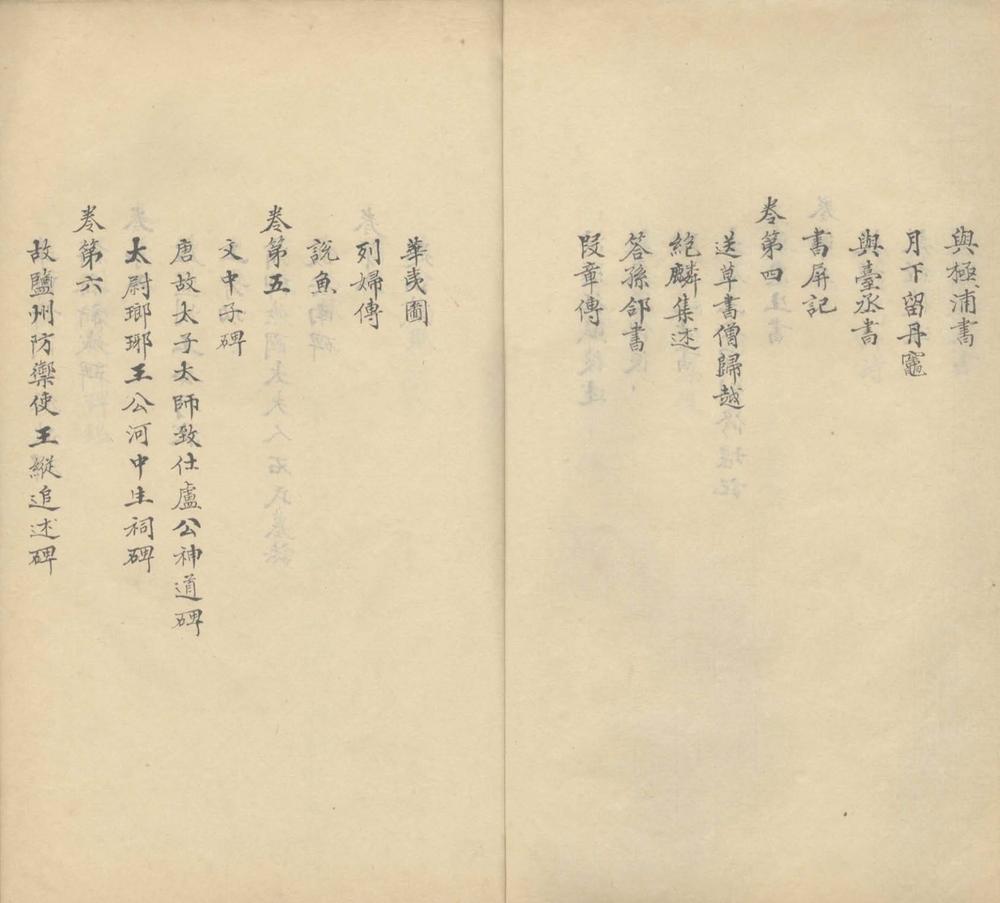 與極浦書
月下留丹竈
與臺丞書
書屏記
卷第四
送草書僧歸越
絶麟集述
答孫郃書
段章傳
華夷圖
列婦傳
說魚
卷第五
文中子碑
唐故太子太師致仕盧公神道碑
太尉瑯琊王公河中生祠碑
卷第六
故鹽州防禦使王縱追述碑